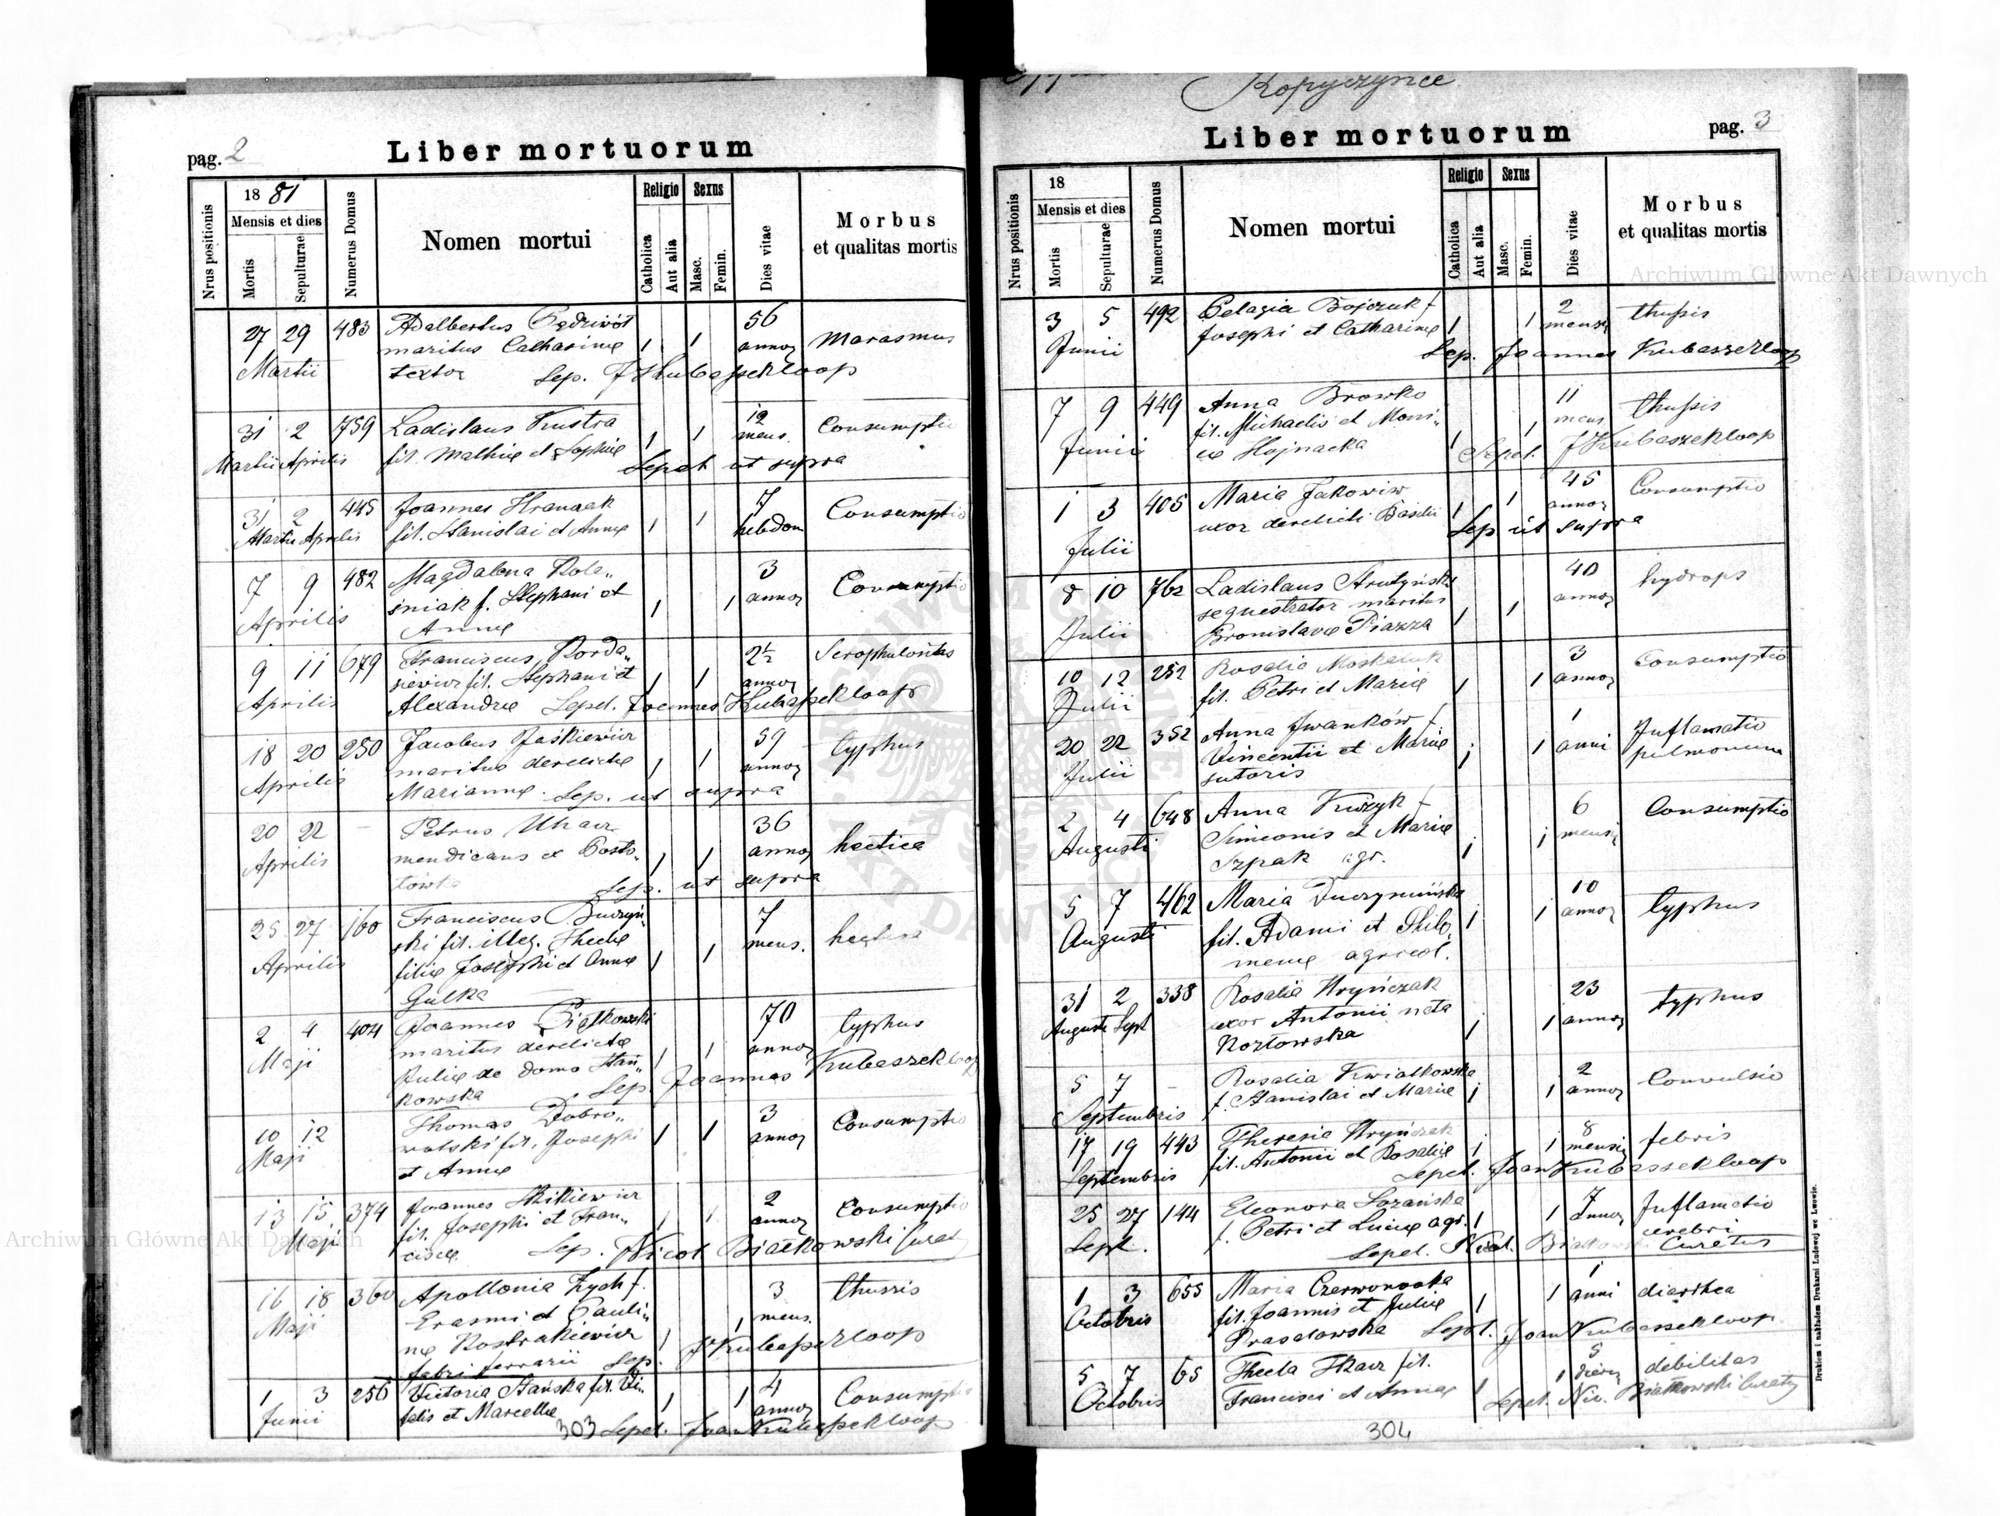 pag. 2
Liber mortuorum
Nrus positionis
18 81
Mensis et dies
Mortis
Sepulturae
Numerus Domus
Nomen mortui
Religio
Catholica
Aut alia
Sexus
Masc.
Femin.
Dies vitae
Morbus
et qualitas mortis
27 29 483 Adalbertus 56
maritus Catharinæ 1 1 annor Marasmus
Martii textor Sep. J Kubaszekloop
31 2 759 Ladislaus Kustra 12
fil. Mathiæ et Sophiæ 1 1 mens. Consumptio
Martii Aprilis Sepel ut supra
31 2 445 Joannes 7 Consumptio
Martii Aprilis fil. Stanislai et Annæ 1 1 hebdom
7 9 482 Magdalena Rola„ 3
śniak f. Stephani et 1 1 annor Consumptio
Aprilis Annæ
9 11 679 Franciscus Korda„ 2½ Scrophulositas
siewicz fil. Stephani et 1 1 annor
Aprilis Alexandræ Sepel. Joannes Kubaszekloop
18 20 250 Jacobus Jaśkiewicz 59 typhus
maritus derelictæ 1 1 annor
Aprilis Mariannæ Sep. ut supra
20 22 – Petrus 36
mendicans ex 1 1 annor hectica
Aprilis Sep. ut supra
25 27 160 Franciscus Buczyń„ 7
ski fil. illeg. Theclæ mens. hectica
Aprilis filiæ Josephi et Annæ 1 1
Gulka
2 4 404 Joannes Piątkowski 70 typhus
maritus derelictæ 1 1 annor
Maji Juliæ de domo
kowska Sep. Joannes Kubaszekloop
10 12 Thomas Dobro„ 3 Consumptio
Maji wolski fil. Josephi 1 1 annor
et Annæ
13 15 374 Joannes 2 Consumptio
fil. Josephi et Fran„ 1 1 annor
Maji ciscæ Sep. Nicol Białkowski Curat
16 18 360 Apollonia Zych f. 3 thussis
Maji Erasmi et Pauli„ 1 1 mens.
næ Kostrakiewicz
fabri ferrarii Sep. J Kubaszekloop
1 3 256 Victoria Stańska fil. Vi„ 1 1 4 Consumptio
Junii talis et Marcellæ annor
303 Sepel. Joan Kubaszekloop
Kopyczynce
Liber mortuorum
pag. 3
Nrus positionis
18
Mensis et dies
Mortis
Sepulturae
Numerus Domus
Nomen mortui
Religio
Catholica
Aut alia
Sexus
Masc.
Femin.
Dies vitae
Morbus
et qualitas mortis
3 5 492 Pelagia Bojczuk f 2 thussis
Junii Josephi et Catharinæ 1 1 mensis
Sep. Joannes Kubaszekloop
7 9 449 Anna Browko 11 thussis
fil. Michaelis et 1 mens
Junii Hojnacka 1 Sepel. J Kubaszekloop
1 3 405 Maria Jakowiw 45 Consumptio
uxor derelicti Basilii 1 1 annor
Julii Sep ut supra
8 10 762 Ladislaus 40 hydrops
sequestrator maritus annor
Julii Bronislavæ Piazza 1 1
10 12 252 Rosalia 3 Consumptio
Julii fil. Petri et Mariæ 1 1 annor
20 22 352 Anna Iwanków f. 1 Inflamatio
Vincentii et Mariæ 1 1 anni pulmonum
Julii sutoris
2 4 648 Anna f 6 Consumptio
Augusti Simeonis et Mariæ 1 1 mensis
Szpak agr.
5 7 462 Maria Duczymińska 10 typhus
Augusti fil. Adami et Philo„ 1 1 annor
menæ agricol.
31 2 338 Rosalia Hryńczak 23 typhus
Augusti Sept uxor Antonii nata 1 1 annor
Kozłowska
5 7 – Rosalia Kwiatkowska 2 Convulsio
Septembris f. Stanislai et Mariæ 1 1 annor
17 19 443 Theresia Hryńczak 1 1 8 febris
Septembris fil. Antonii et Rosaliæ mensis
Sepel. Joan Kubaszekloop
25 27 144 Eleonora Łozańska 7 Inflamatio
Sept. f. Petri et Luciæ agr. 1 1 annor cerebri
Sepel. Nicol. Białkowski Curatus
1 3 655 Maria Czerwonooka 1 1 1 anni diarrhea
Octobris fil. Joannis et Juliæ
Sepel. Joan Kubaszekloop
5 7 65 Thecla Tkacz fil. 1 5 dierum debilitas
Octobris Francisci et Annæ 1 Sepel. Nic. Białkowski Curatus
304
Drukiem i nakładem Drukarni Ludowej we Lwowie.
Archiwum Główne Akt Dawnych
Archiwum Główne Akt Dawnych
ARCHIWUM GŁÓWNE AKT DAWNYCH